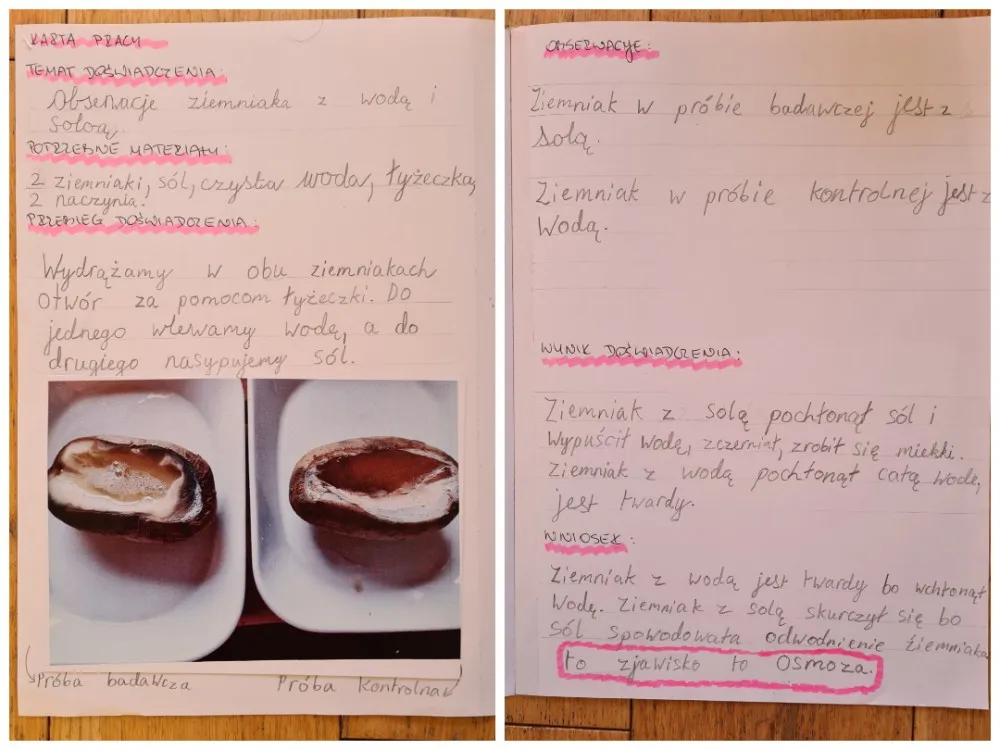 KARTA PRACY
TEMAT DOŚWIADCZENIA:
Obserwacje ziemniaka z wodą i
solą.
POTRZEBNE MATERIAŁY:
2 ziemniaki, sól, czysta woda, łyżeczka,
2 naczynia.
PRZEBIEG DOŚWIADCZENIA:
Wydrążamy w obu ziemniakach
otwór za pomocom łyżeczki. Do
jednego wlewamy wodę, a do
drugiego nasypujemy sól.
Próba badawcza
Próba Kontrolna
OBSERWACJE:
Ziemniak w próbie badawczej jest z
solą.
Ziemniak w próbie kontrolnej jest z
wodą.
WYNIK DOŚWIADCZENIA:
Ziemniak z solą pochłonął sól i
wypuścił wodę, zczerniał, zrobił się miekki.
Ziemniak z wodą pochłonął całą wodę,
jest twardy.
WNIOSEK:
Ziemniak z wodą jest twardy bo wchłonął
wodę. Ziemniak z solą skurczył się bo
sól spowodowała odwodnienie ziemniaka
to zjawisko to osmoza.